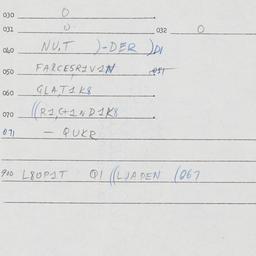 030 O
031 O 032 O
040 NU,T )-DER )DI
050 FARCESR1V1N 051
060 GLA,T1K8
070 ((R1,C+1ND1K8
071 — QUKR
900 L80P1T Q1 ((LJADEN (067